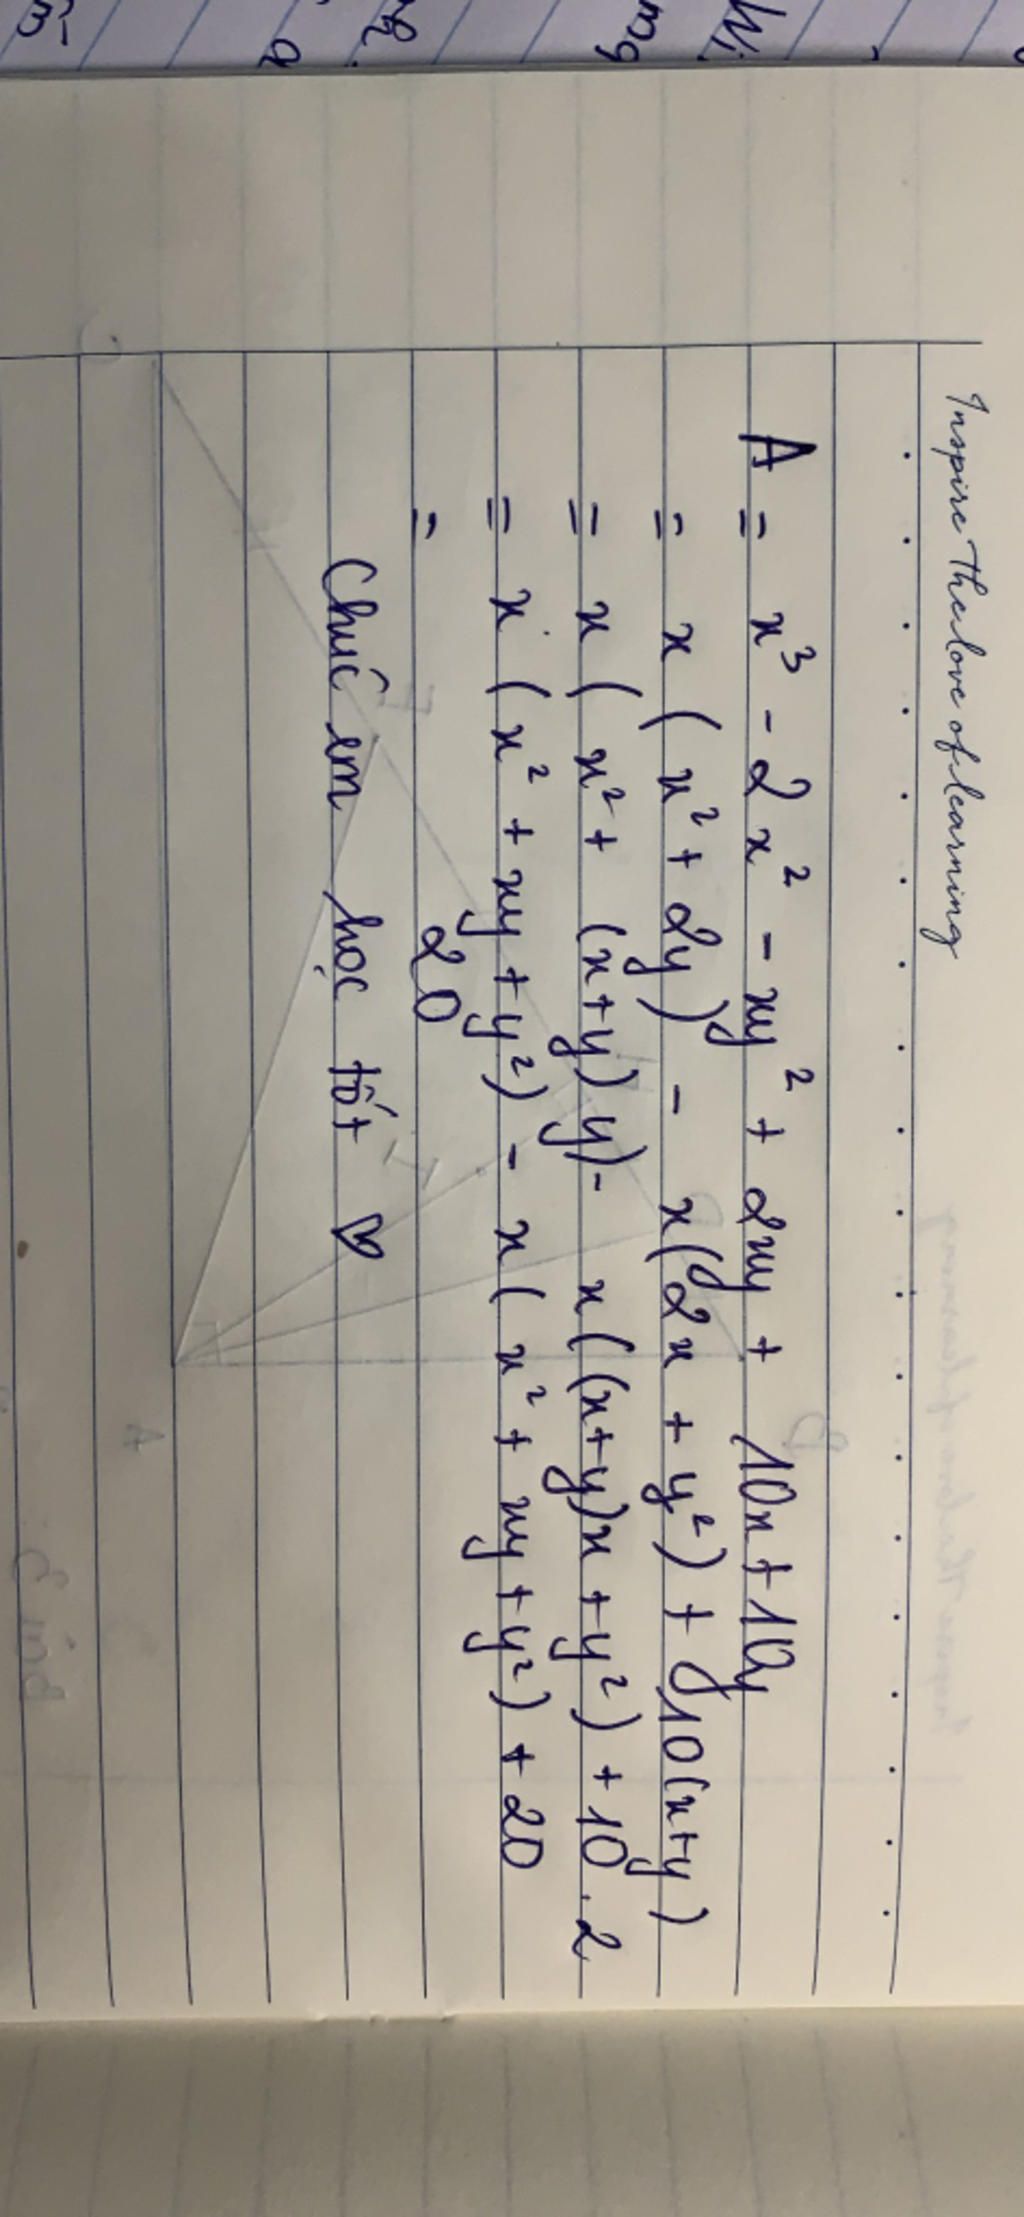 Inspire The love of learning
A = x³ - 2x² - xy² + 2xy + 10x + 10y
= x (x² + 2y) - x(2x + y²) + 10(x+y)
= x (x² + (x+y) y) - x((x+y)x + y²) + 10.2
= x (x² + xy + y²) - x (x² + xy + y²) + 20
= 20
Chúc em học tốt ♡